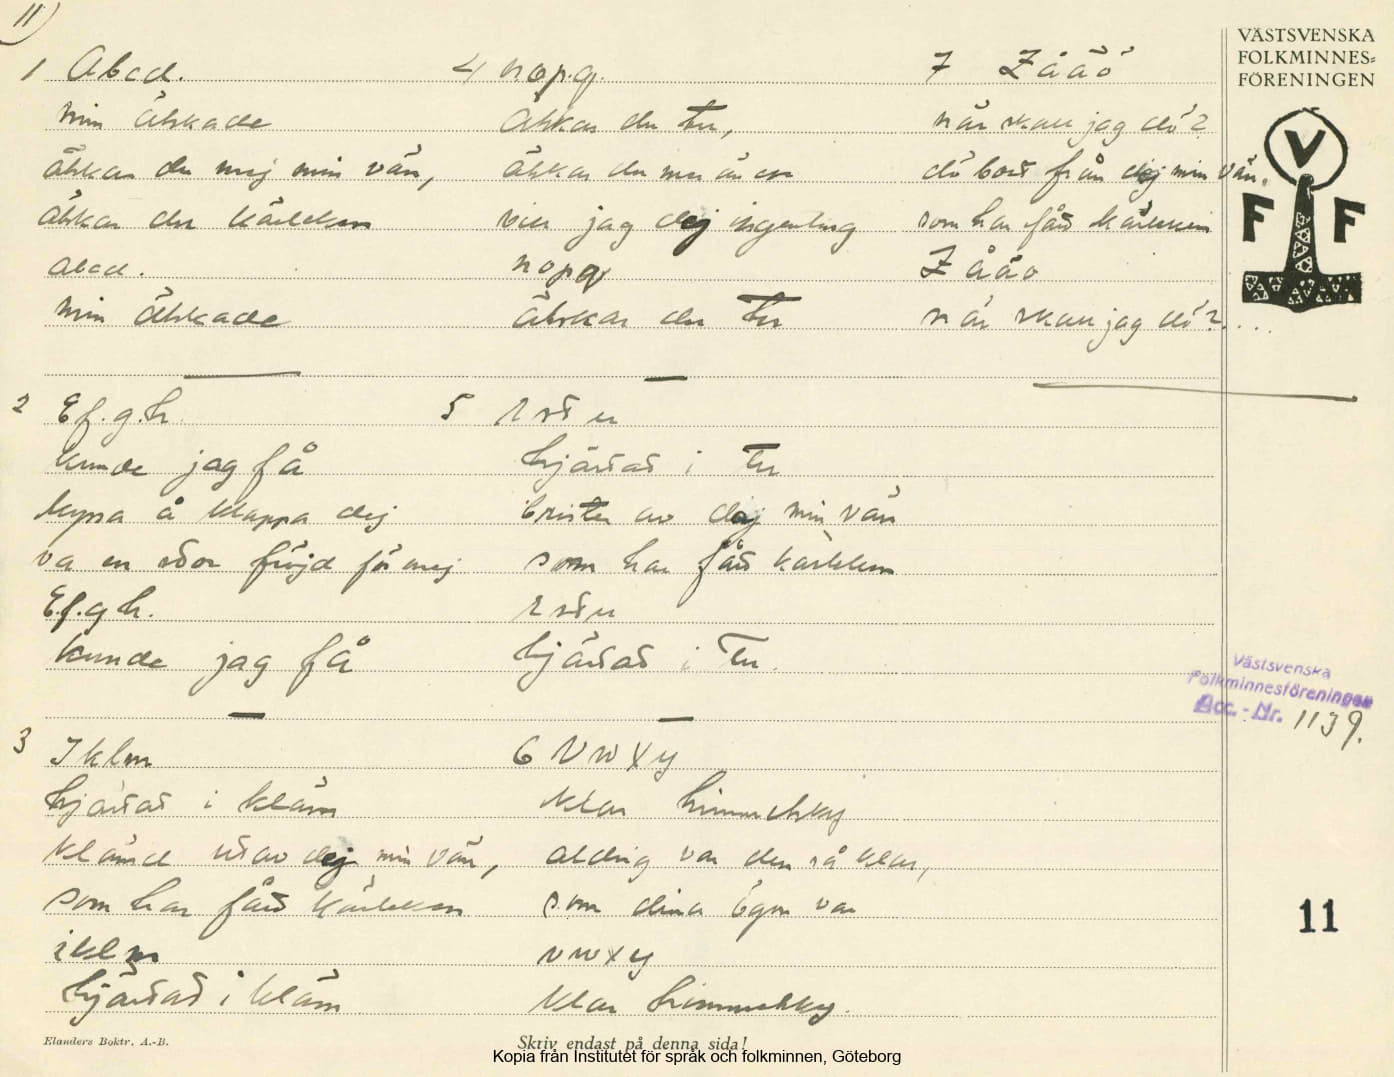 11)
1 Abcd.
min älskade
älskar du mej min vän,
älskar du kärleken
abcd.
min älskade
2 Ef.g.h.
kunde jag få
kyssa å klappa dej
va en stor fröjd för mej
Ef.gh.
kunde jag få
3 Iklm
hjärtat i kläm
klämd utav dej min vän,
som har fått kärleken
iklm
hjärtat i kläm
4 nop.q.
älskar du tu,
älskar du mer än en
vier jag dej ingenting
nopq
älskar du tu
5 rstu
hjärtat i tu
brister av dej min vän
som har fått kärleken
rstu
hjärtat i tu.
6 Vwxy
klar himmelsky
aldrig var den så klar,
som dina ögon var
vwxy
klar himmelsky.
7 Zåäö
när skall jag dö?
dö bort från dej min vän.
som har fått kärleken
Zåäö
när skall jag dö?....
VÄSTSVENSKA
FOLKMINNES=
FÖRENINGEN
V
F F
Västsvenska
Folkminnesföreningen
Acc. - Nr. 1139.
11
Elanders Boktr. A.-B.
Skriv endast på denna sida!
Kopia från Institutet för språk och folkminnen, Göteborg